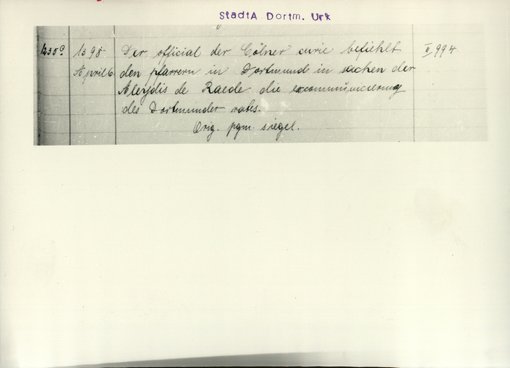 StadtA Dortm. Urk
1398 Der official der Cölner curie befiehlt II, 994
April 6 den pfarrern in Dortmund in sachen der
Aleydis de Raede die excommunicierung
des Dortmunder rates.
Orig. pgm siegel.